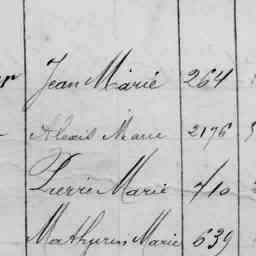 Jean Marie 264
Alexis Marie 2176
Pierre Marie 710
Mathurin Marie 639